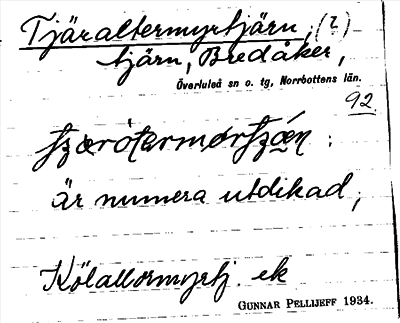 Tjäraltermyrtjärn, (2)
tjärn, Bredåker,
Överluleå sn o. tg, Norrbottens län.
92.
är numera utdikad,
Kölallormyrtj. ek
GUNNAR PELLIJEFF 1934.